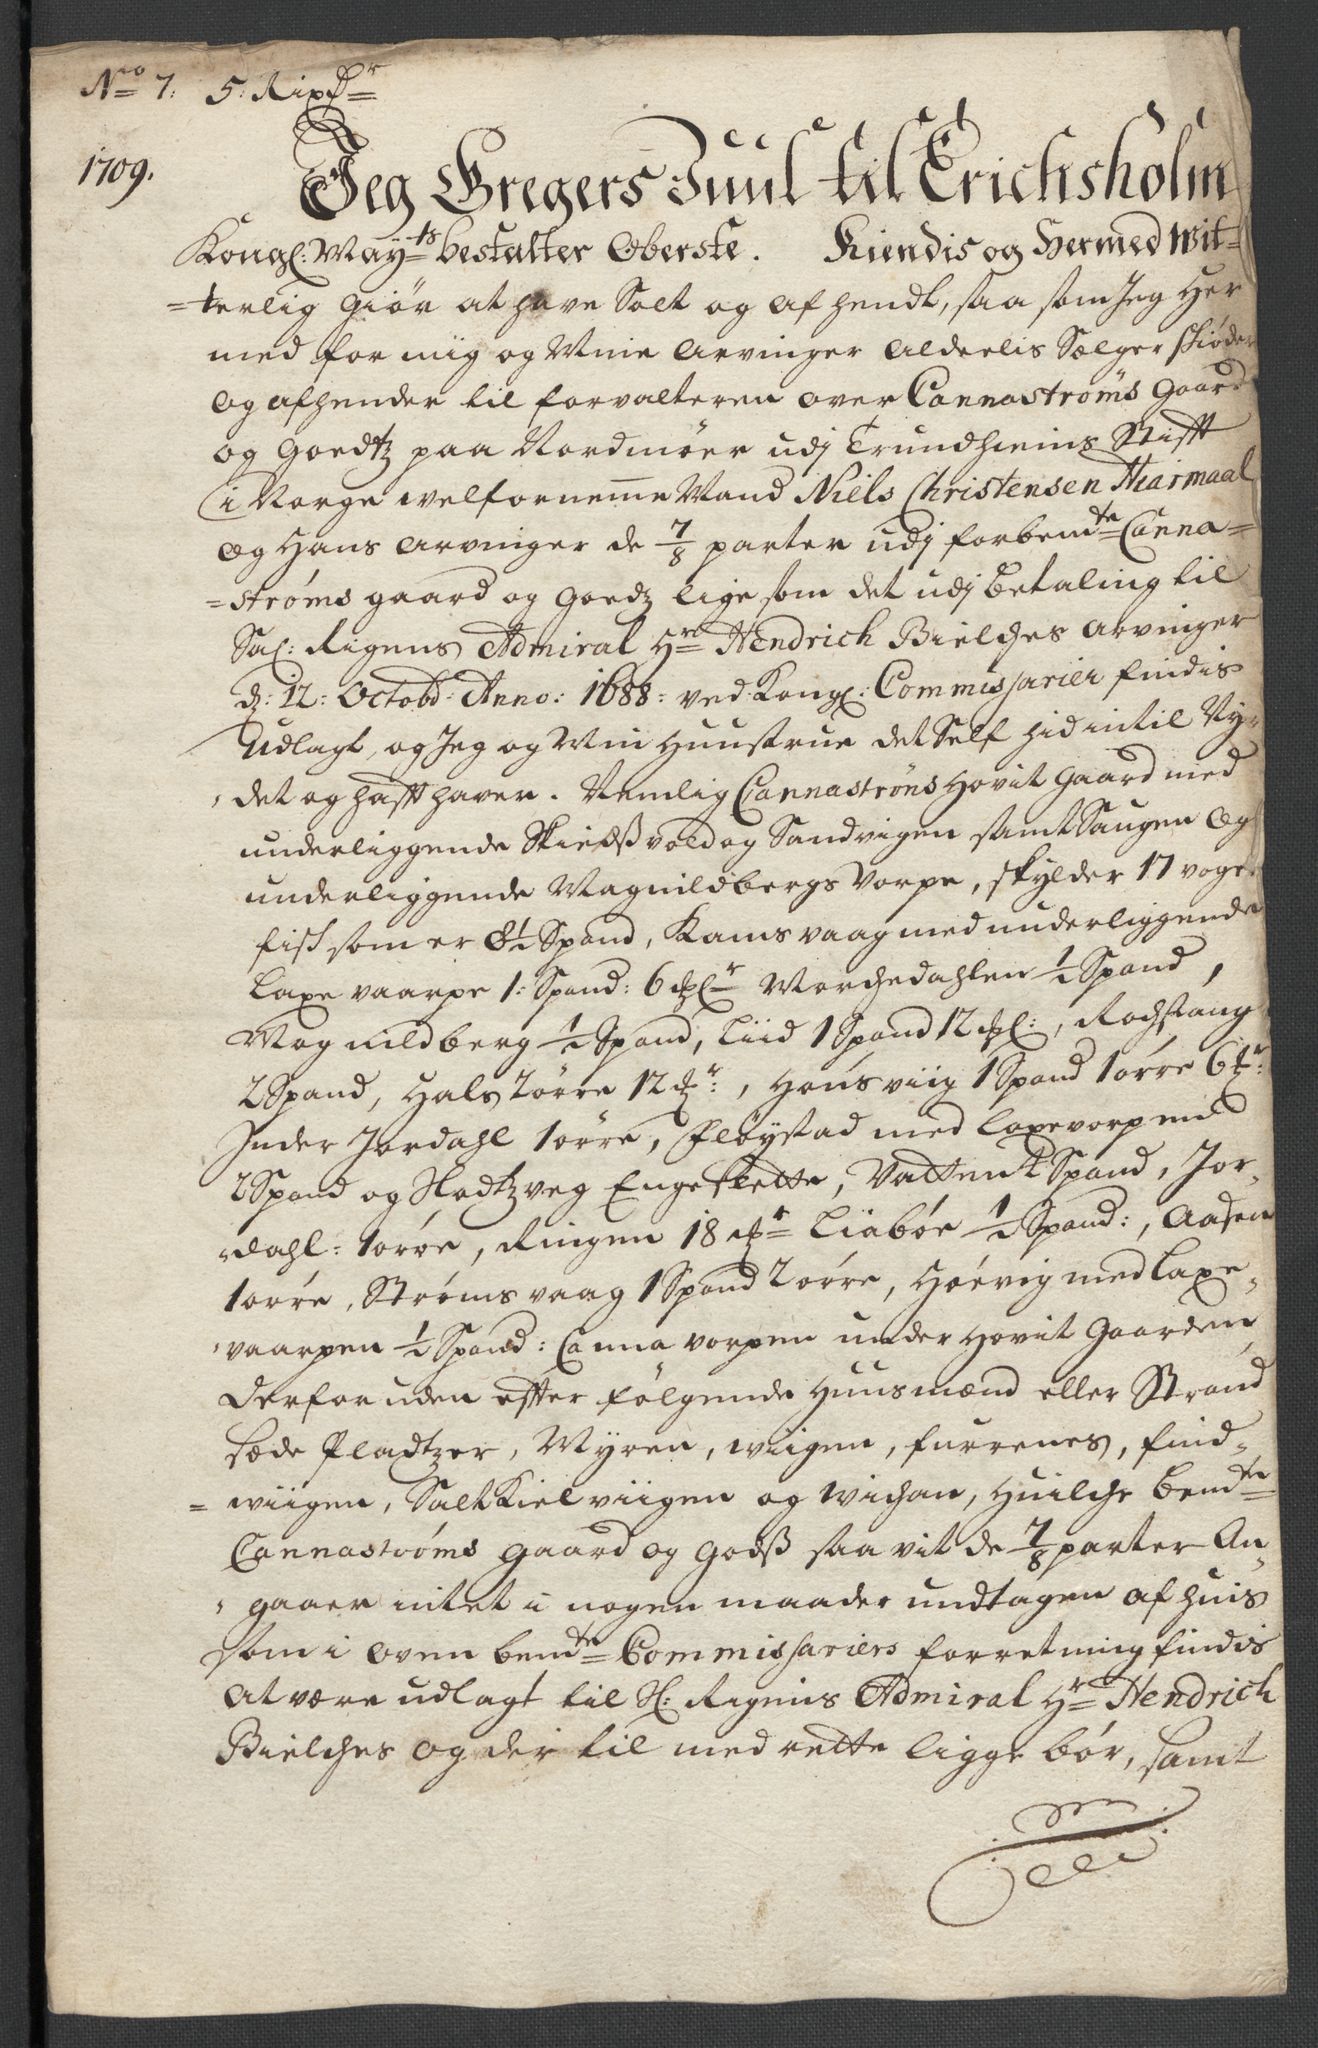 No 7: 5: Rixdr
1709.
Jeg Gregers Juul til Erichsholm
Kongl: Mayts bestalter Oberste. Kiendis og Hermed Wit=
=terlig Giør at have Solt og af hendt, saa som Jeg Her
med for miig og Mine Arvinger Alderlis Sælger skiøder
og afhender til forvalteren over Cannastrøms Gaard
og Goedtz paa Nordmøer udj Trundhiems Stifft
i Norge welforneme Mand Niels Christensen Hiarmaal
og Hans Arvinger de 7/8 parter udj forbemte Canna=
=strøms gaard og Goedtz lige som det udj betaling til
Sal: Rigens Admiral Hr Hendrich Bielches Arvinger
d: 12: Octobd: Anno: 1688: ved Kongl: Commissarier findis
Udlagt, og Jeg og Min Huustrue det Self hid intil Ny=
det og hafft haver. Nemlig Cannastrøms Hovit Gaard med
underliggende Skieds vold og Sandvigen samt Saugen og
underliggende Magnildbergs Vorpe, skylder 17 voger
fisk som er 8½ Spand, Kamsvaag med underliggende
Laxe vaarpe 1: Spand: 6 ... Morchedahlen ½ Spand,
Magnildberg ½ Spand, Liid 1 Spand 12 ..., Rochstang
2 Spand, Hals 2 ørre 12 ..., Honsviig 1 Spand 1 ørre 6 ...
Inder Jordahl 1 ørre, Fløystad med Laxevorpene
2 Spand og Nodtzveg Engeslette, Vatten 2 Spand, Jor=
dahl: 1 ørre, Ringen 18 ... Liabøe ½ Spand:, Aasen
1 ørre, Strømsvaag 1 Spand 2 ørre, Høevig med Laxe=
vaarpen ½ Spand: Canna vorpen under Hovit Gaarden,
Derforuden effter følgende Huusmænd eller Strand
sæde Pladtzer, Myren, wiigen, furrenes, find=
=wiigen, Saltkielviigen og Wichan, Huilche bemte
Cannastrøms gaard og Godss saa vit de 7/8 parter An=
gaaer intet i nogen maader undtagen af huis
som i oven bemte Commissariers forretning findis
At være udlagt til Sl: Rigens Admiral Hr Hendrich
Bielches og der til med rette ligge bør, samt